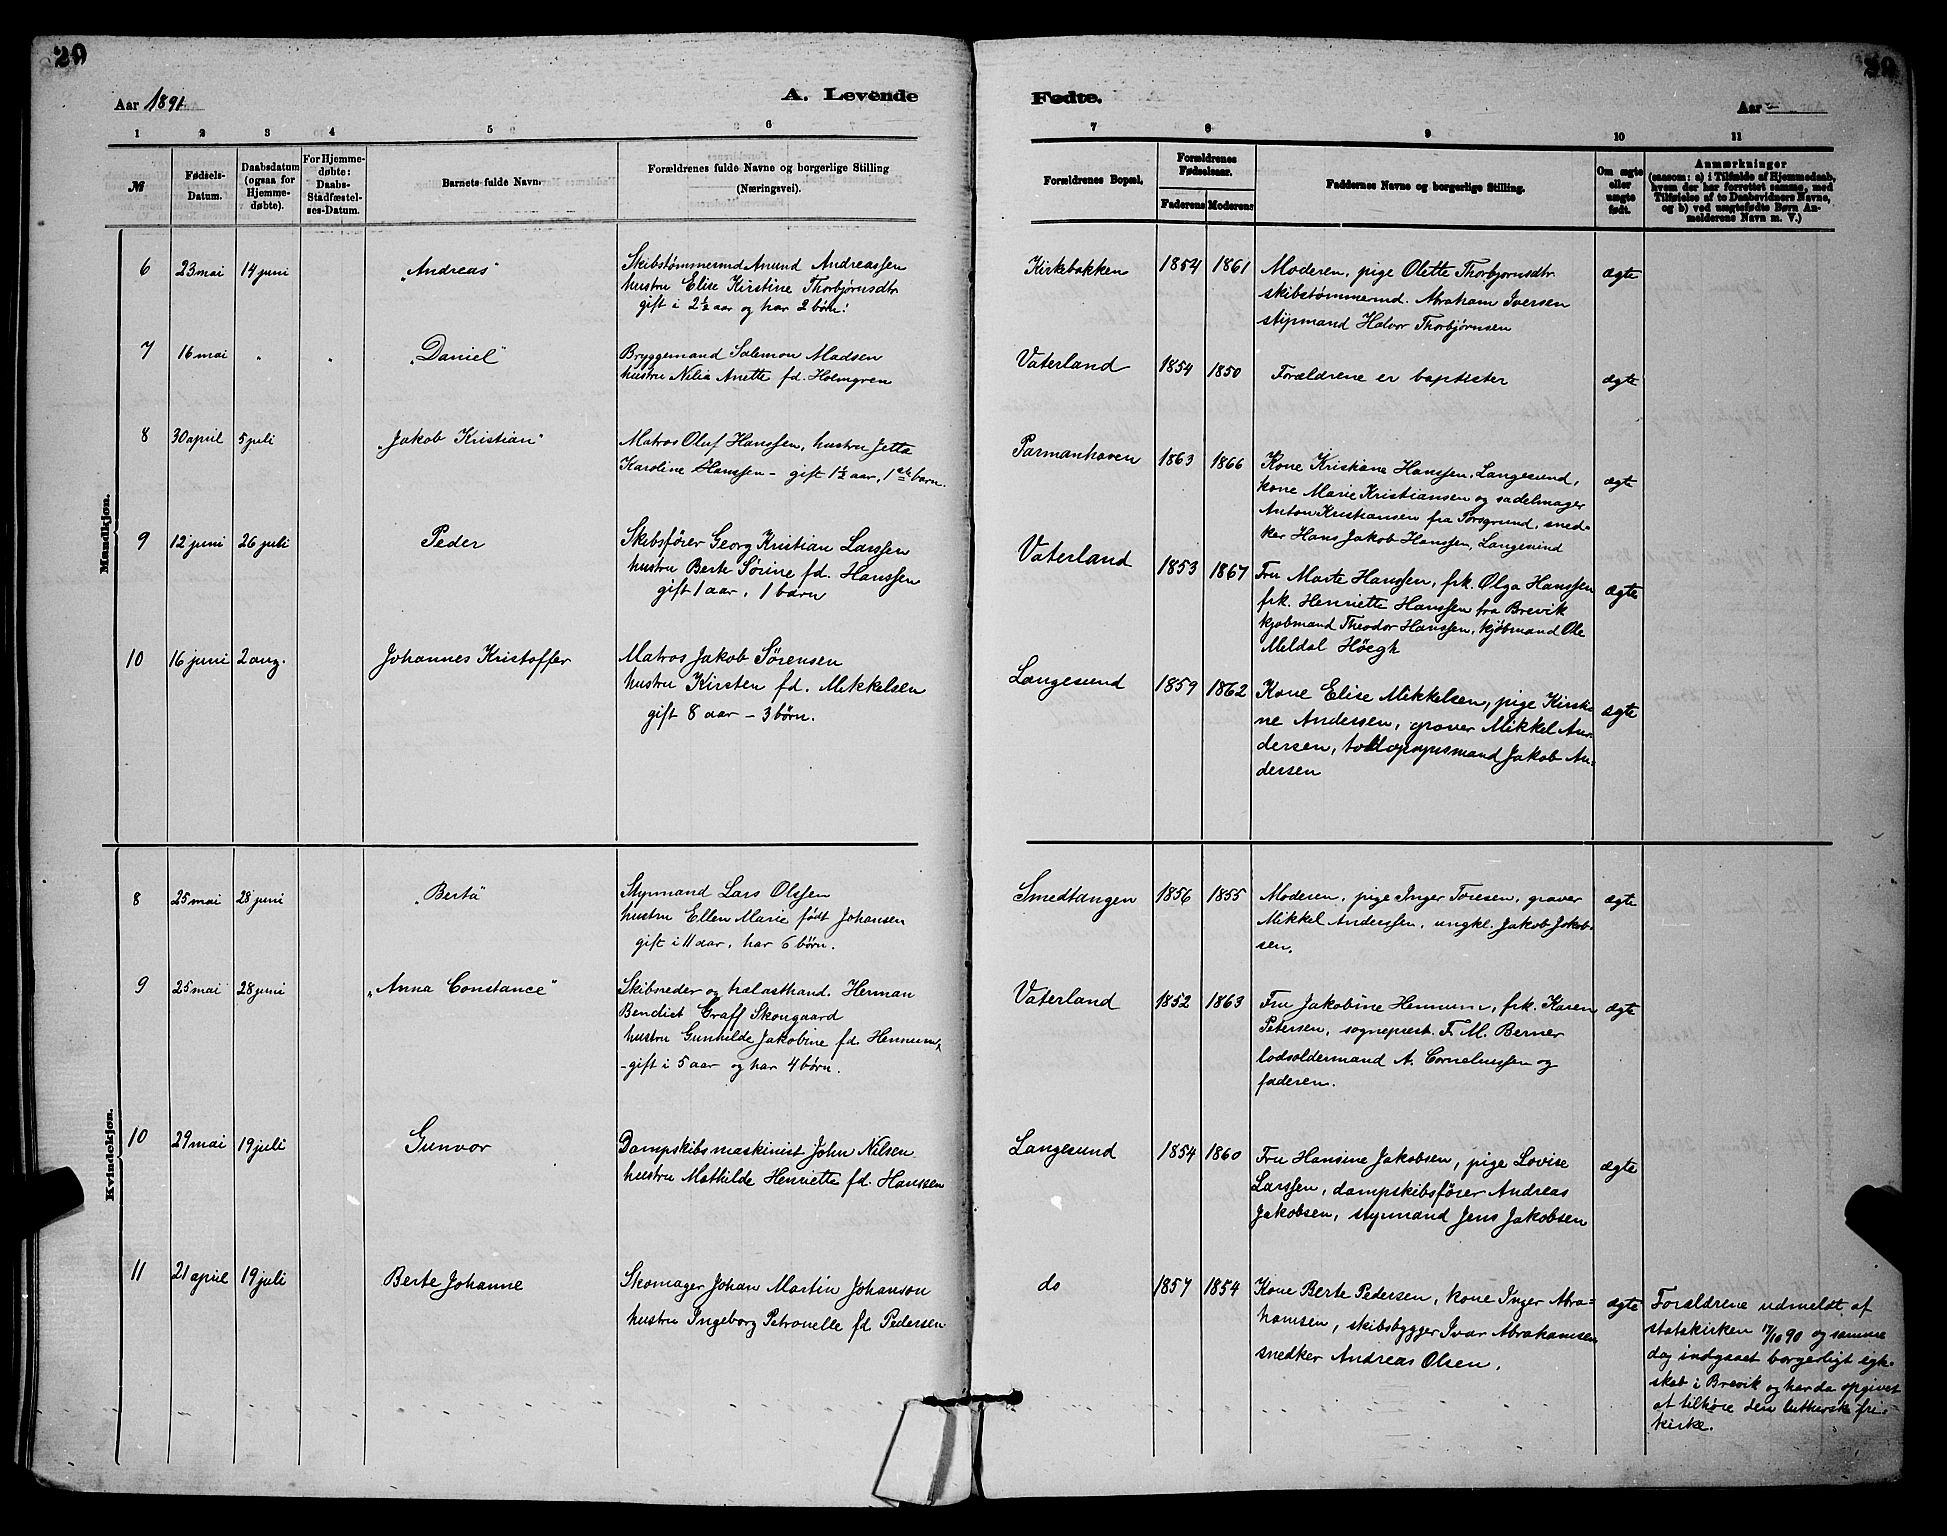 20
Aar 1891.
A. Levende
1 2 3 4 5 6
№
Fødsels-Datum.
Daabsdatum (ogsaa for Hjemme-døbte).
For Hjemme-døbte: Daabs-Stadfæstel-ses-Datum.
Barnets fulde Navn.
Forældrenes fulde Navne og borgerlige Stilling (Næringsvei).
Mandkjøn.
6 23 mai 14 juni "Andreas"
Skibstømmermd Anund Andreassen
hustru Elise Kirstine Thorbjørnsdtr
gift i 2½ aar og har 2 børn.
7 16 mai " " "Daniel"
Bryggemand Salemon Madsen
hustru Nilia Anette fd. Holmgren
8 30 april 5 juli "Jakob Kristian"
Matros Oluf Hanssen, hustru Jetta
Karoline Hanssen - gift 1½ aar, 1 barn.
9 12 juni 26 juli Peder
Skibsfører Georg Kristian Larssen
hustru Berte Sørine fd. Hanssen
gift 1 aar, 1 barn
10 16 juni 2 aug. Johannes Kristoffer
Matros Jakob Sørensen
hustru Kirsten fd. Mikkelsen
gift 8 aar - 3 børn.
Kvindekjøn.
8 25 mai 28 juni "Berta"
Styrmand Lars Olssen
hustru Ellen Marie født Johansen
gift i 11 aar, har 6 børn.
9 25 mai 28 juni "Anna Constance"
Skibsreder og trælasthand. Herman
Bendict Graff Skougaard
hustru Gunhilde Jakobine fd. Hennum,
- gift i 5 aar og har 4 børn.
10 29 mai 19 juli Gunvor
Dampskibsmaskinist John Nilsen
hustru Mathilde Henriette fd. Hanssen
11 21 april 19 juli Berte Johanne
Skomager Johan Martin Johanson
hustru Ingeborg Petronelle fd. Pedersen
Fødte.
Aar
7 8 9 10 11
Forældrenes Bopæl.
Forældrenes Fødselsaar.
Faderens Moderens
Faddernes Navne og borgerlige Stilling.
Om ægte eller uægte født.
Anmærkninger
(saasom: a) i Tilfælde af Hjemmedaab,
hvem der har forrettet samme, med
Tilføielse af to Daabsvidners Navne,
og b) ved uægtefødte Børn An-
melderens Navn m. V.)
Kirkebakken 1854 1861 Moderen, pige Olette Thorbjørnsdtr. ægte
skibstømmermd. Abraham Iversen
styrmand Halvor Thorbjørnsen
Vaterland 1854 1850 Forældrene er baptister ægte
Parmanhaven 1863 1866 Kone Kristiane Hanssen, Langesund, ægte
kone Marie Kristiansen og sadelmager
Anton Kristiansen fra Porsgrund, sned-
ker Hans Jakob Hanssen, Langesund
Vaterland 1853 1867 Fru Marte Hanssen, frk. Olga Hanssen ægte
frk. Henriette Hanssen fra Brevik
kjøbmand Theodor Hanssen, kjøbmand Ole
Meldal Höegh
Langesund 1859 1862 Kone Elise Mikkelsen, pige Kirsti- ægte
ne Andersen, graver Mikkel An-
dersen, toldopsynsmand Jakob An-
dersen
Smedtangen 1856 1855 Moderen, pige Inger Toresen, graver ægte
Mikkel Anderssen, ungkl. Jakob Jakob-
sen.
Vaterland 1852 1863 Fru Jakobine Hennum, frk. Karen ægte
Petersen, sogneprest. F. M. Berner
lodsoldermand A. Corneliussen og
faderen.
Langesund 1854 1860 Fru Hansine Jakobsen, pige Lovise ægte
Larssen, dampskibsfører Andreas
Jakobsen, styrmand Jens Jakobsen
do 1857 1854 Kone Berte Pedersen, kone Inger Abra- ægte
hamsen, skibsbygger Ivar Abrahamsen
snedker Andreas Olsen.
Forældrene udmeldt af
statskirken 17/10 90 og samme
dag indgaaet borgerligt egte-
skab i Brevik og har da opgivet
at tilhøre den lutherske fri-
kirke.